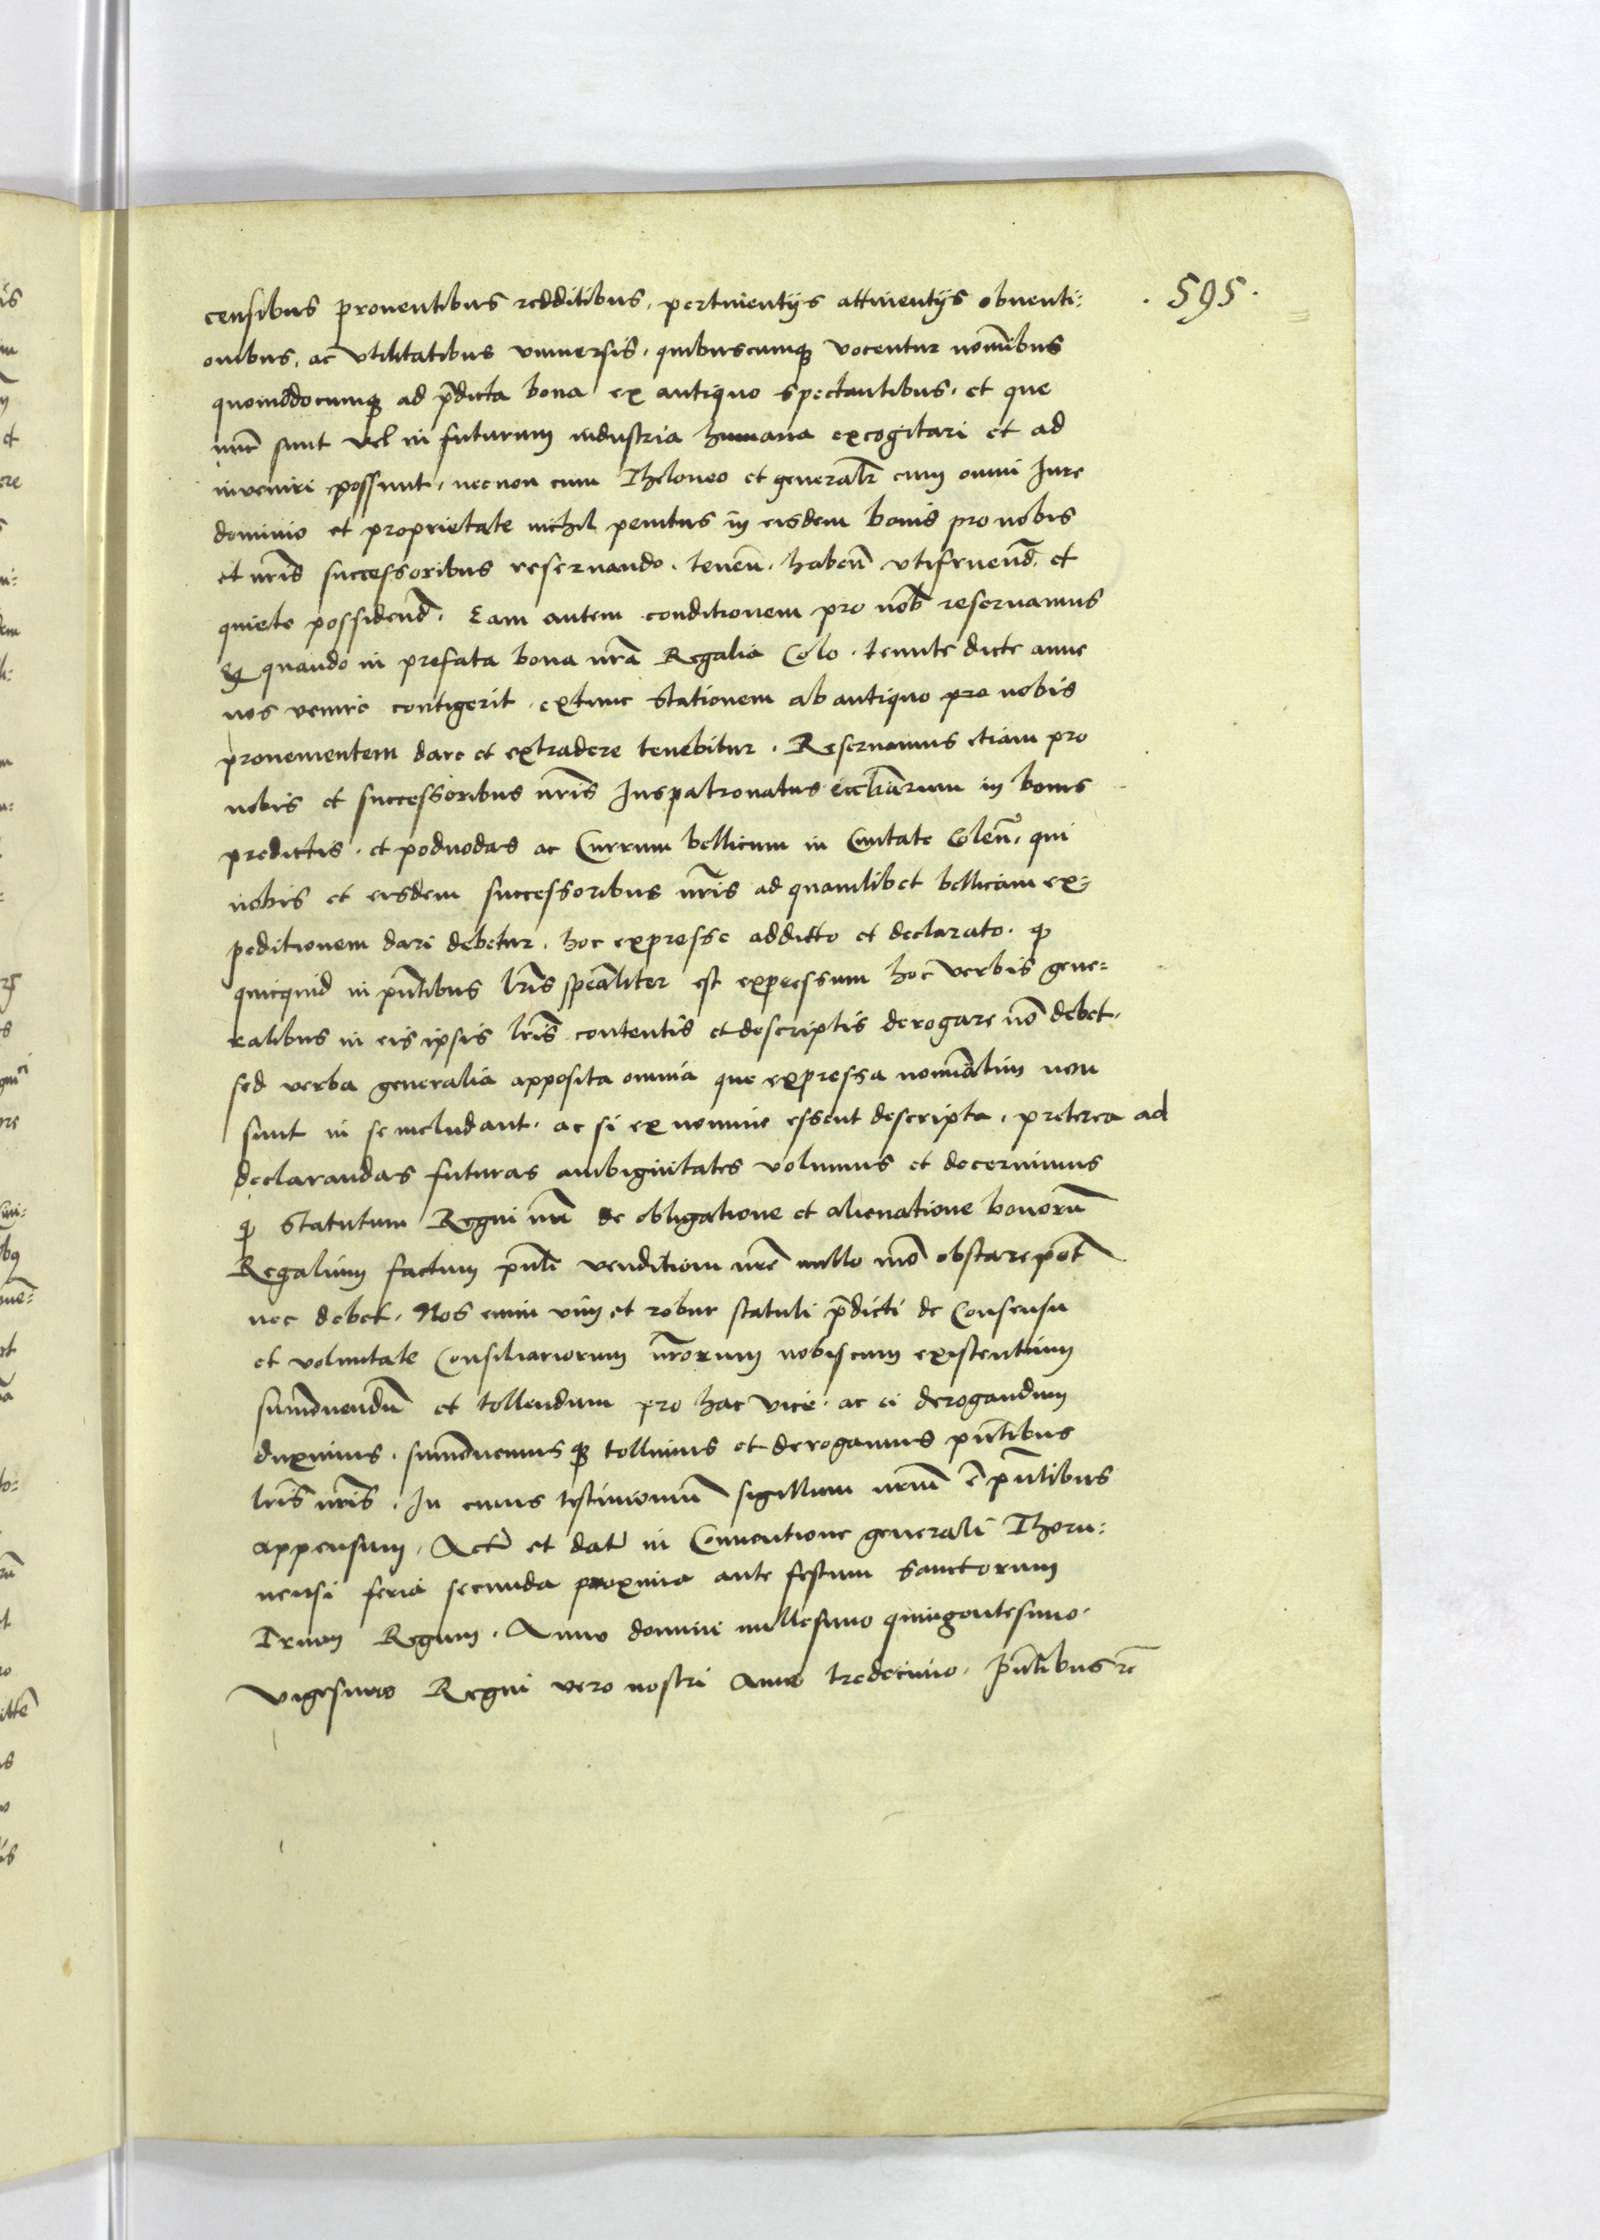 . 595 .
censibus prouentibus redditibus, pertinentijs attinentijs obuenti:
onibus, ac vtilitatibus vniuersis, quibuscumq vocentur nomĩbus
quomodocumq ad p̄dicta bona ex antiquo spectantibus, et que
nunc sunt vel in futurum industria humana excogitari et ad
inveniri possunt, necnon cum Theloneo et generalr̃ cum omni Iure
dominio et proprietate nichil penitus in eisdem bonis pro nobis
et nr̃is successoribus reseruando. tenen̄. haben̄ vtifruend̄. et
quiete possidend̄. Eam autem conditionem pro nob̄ reseruamus
Q quando in prefata bona nr̃a Regalia Colo. tenute dicte anne
nos venire contigerit, extunc stationem ab antiquo pro nobis
prouenientem dare et extradere tenebitur. Reseruamus etiam pro
nobis et successoribus nr̃is Iuspatronatus eccliārum in bonis
predictis. et podwodas ac Currum bellicum in Ciuitate Colen̄, qui
nobis et eisdem successoribus nr̃is ad quamlibet bellicam ex:
peditionem dari debetur. hoc expresse addito et declarato. q
quicquid in pn̄tibus lr̃is spēaliter est expressum hoc verbis gene:
ralibus in eis ipsis lr̃is contentis et descriptis derogare nō debet.
sed verba generalia apposita omnia que expressa nomīatim non
sunt in se includant. ac si ex nomine essent descripta. preterea ad
declarandas futuras ambiguitates volumus et decernimus
q statutum Regni nr̃i de obligatione et alienatione bonorū
Regalium factum pn̄ti venditioni nr̃e nullo mō obstare pōt
nec debet. Nos enim vim et robur statuti p̄dicti de Consensu
et voluntate Consiliariorum nr̃orum nobiscum existentium
sum̄ouendū et tollendum pro hac vice. ac ei derogandum
duximus. sum̄ouemus q tollimus et derogamus pn̄tibus
lr̃is nr̃is. In cuius testimoniū sigillum nr̃um ē pn̄tibus
appensum. Actū et datū in Conuentione generali Thoru:
nensi feria secunda proxima ante festum sanctorum
Trium Regum. Anno domini millesimo quingentesimo.
vigesimo Regni vero nostri Anno tredecimo. Pn̄tibus rc̄